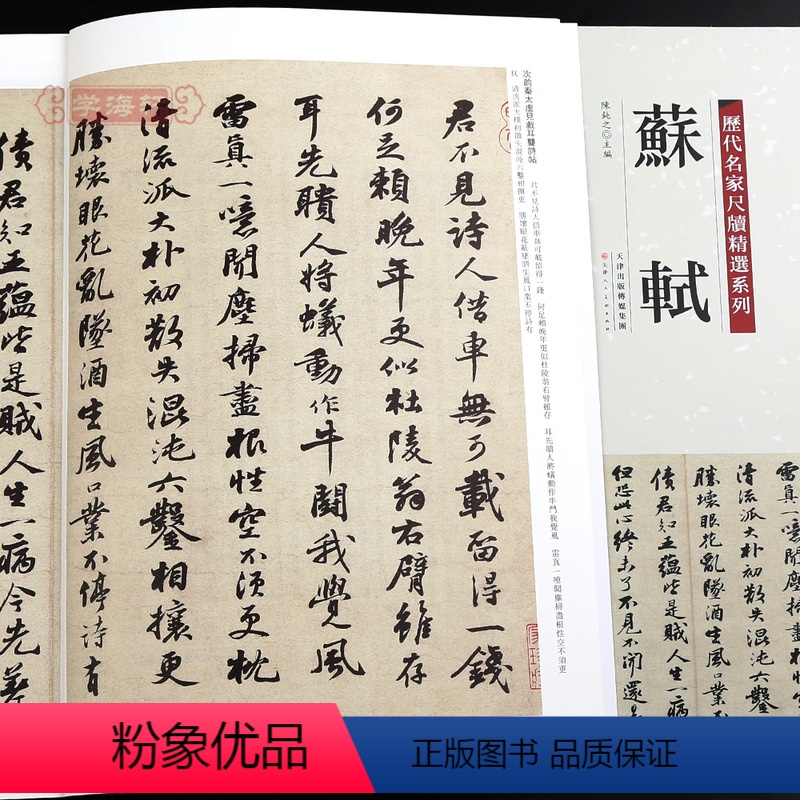 学海轩
君不見詩人借車無可載留得一錢
何足賴晚年更似杜陵翁右臂雖存
耳先聵人將蟻動作牛鬪我覺風
雷真一噫聞塵掃盡根性空不須更枕
清流派大朴初散失混沌六鑿相攘更
勝壞眼花亂墜酒生風口業不停詩有
債君知五蘊皆是賊人生一病今先差
次韵秦太虚見戲耳聾詩帖
君不見詩人借車無可載留得一錢 何足賴晚年更似杜陵翁右臂雖存 耳先聵人將蟻動作牛鬥我覺風 雷真一噫聞塵掃盡根性空不須更
枕 清流派大樸初散失混沌六鑿相攘更 勝壞眼花亂墜酒生風口業不停詩有
歷代名家尺牘精選系列
蘇軾
陳鈍之◎主編
天津出版傳媒集團
天津人民美術出版社
雷真一噫聞塵掃盡根性
清流派大朴初散失混沌六鑿
勝壞眼花亂墜酒生風口業
債君知五蘊皆是賊人生一病
但恐此心終未了不見不聞還
粉象优品
正版图书 品质保证